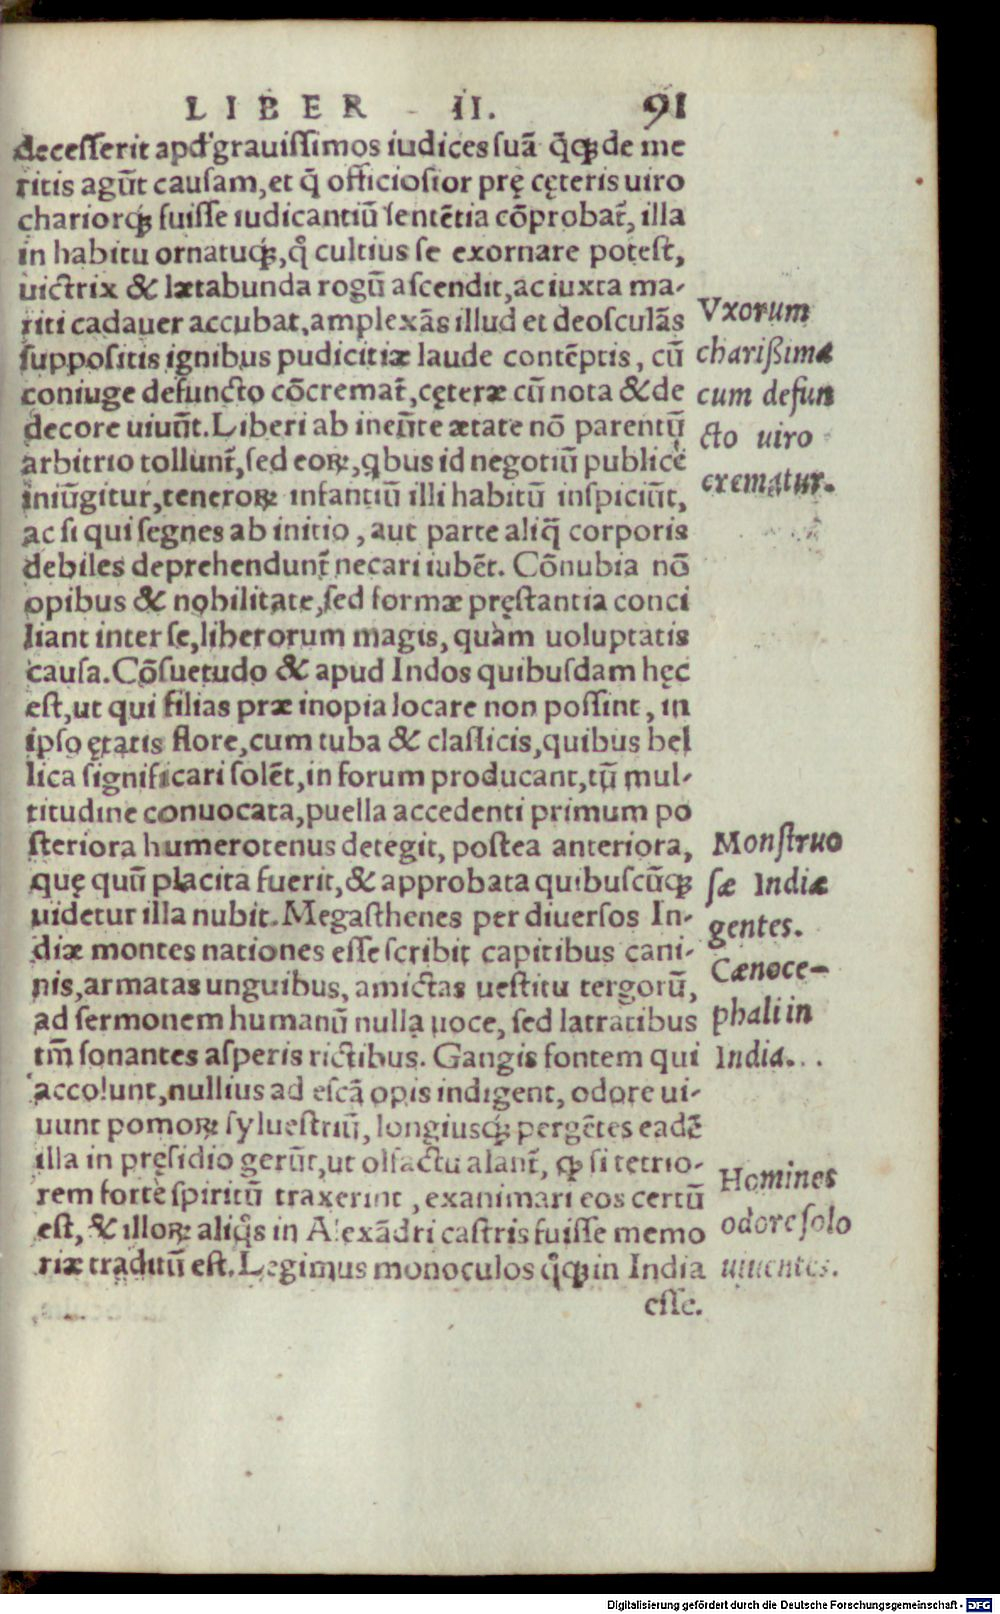 LIBER II. 91
decesserit apđ grauissimos iudices suã q̃q; de me
ritis agũt causam, et q̃ officiosior prę cęteris uiro
chariorq; fuisse iudicantiũ sentẽtia cõprobat̃, illa
in habitu ornatuq;, q̊ cultius se exornare potest,
uictrix & lætabunda rogũ ascendit, ac iuxta ma-
riti cadauer accubat, amplexãs illud et deosculãs
suppositis ignibus pudicitiæ laude contẽptis, cũ
coniuge defuncto cõcremat̃, cęteræ cũ nota & de
decore uiuũt. Liberi ab ineũte ætate nõ parentũ
arbitrio tollunt̃, sed eoꝝ, qbus id negotiũ publicè
iniũgitur, teneroꝝ infantiũ illi habitũ inspiciũt,
ac si qui segnes ab initio, aut parte aliq̃ corporis
debiles deprehendunt̃ necari iubẽt. Cõnubia nõ
opibus & nobilitate, sed formæ pręstantia conci
liant inter se, liberorum magis, quàm uoluptatis
causa. Cõsuetudo & apud Indos quibusdam hęc
est, ut qui filias præ inopia locare non possint, in
ipso ętatis flore, cum tuba & classicis, quibus bel
lica significari solẽt, in forum producant, tũ mul-
titudine conuocata, puella accedenti primum po
steriora humerotenus detegit, postea anteriora,
quę quũ placita fuerit, & approbata quibuscũq;
uidetur illa nubit. Megasthenes per diuersos In-
diæ montes nationes esse scribit capitibus cani-
nis, armatas unguibus, amictas uestitu tergorũ,
ad sermonem humanũ nulla uoce, sed latratibus
tm̃ sonantes asperis rictibus. Gangis fontem qui
accolunt, nullius ad escã opis indigent, odore ui-
uunt pomoꝝ syluestriũ, longiusq; pergẽtes eadẽ
illa in pręsidio gerũt, ut olfactu alant̃, ꝙ si tetrio-
rem fortè spiritũ traxerint, exanimari eos certũ
est, & illoꝝ aliq̊s in Alexãdri castris fuisse memo
riæ traditũ est. Legimus monoculos q̊q; in India
esse.
Vxorum
charißima
cum defun
cto uiro
crematur.
Monstruo
sæ Indiæ
gentes.
Cænoce-
phali in
India.
Homines
odore solo
uiuentes.
Digitalisierung gefördert durch die Deutsche Forschungsgemeinschaft - DFG